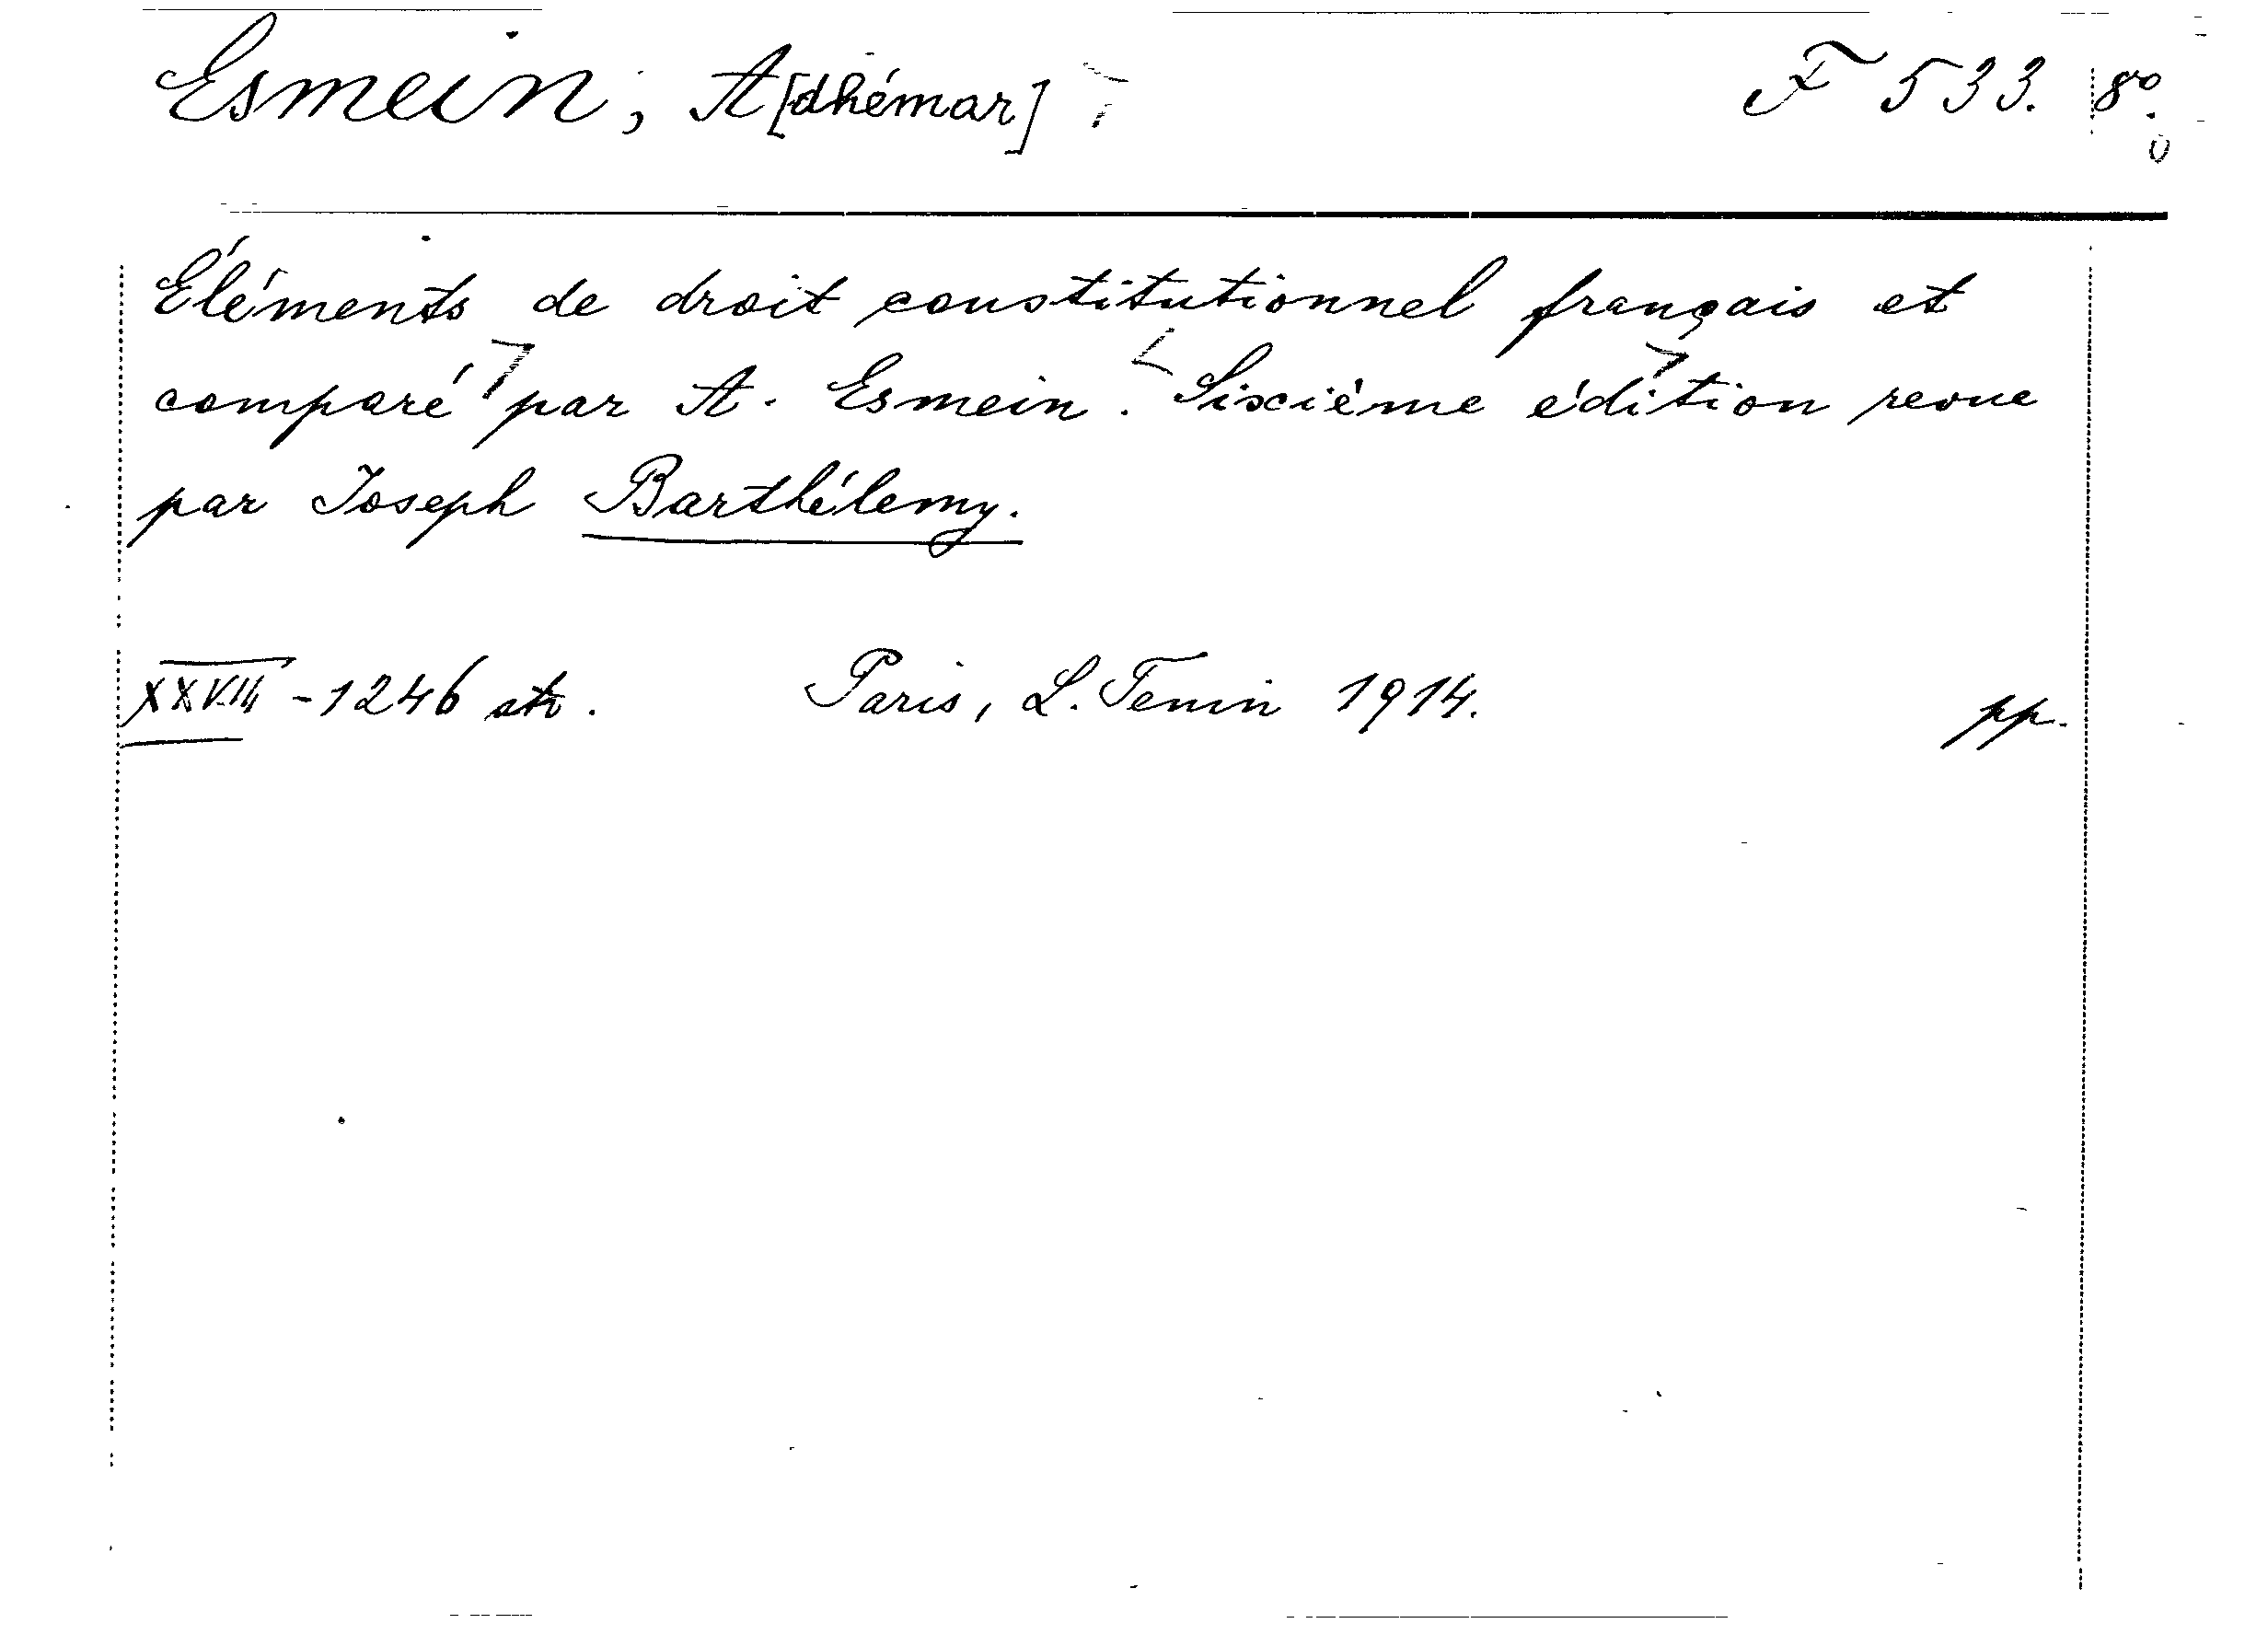 Esmein, A[dhémar] F 533. 8º.
Éléments de droit constitutionnel français et
comparé par A. Esmein. Sixiéme édition revue
par Joseph Barthélemy.
XXVIII-1246 str. Paris, L. Tenin 1914. pp.